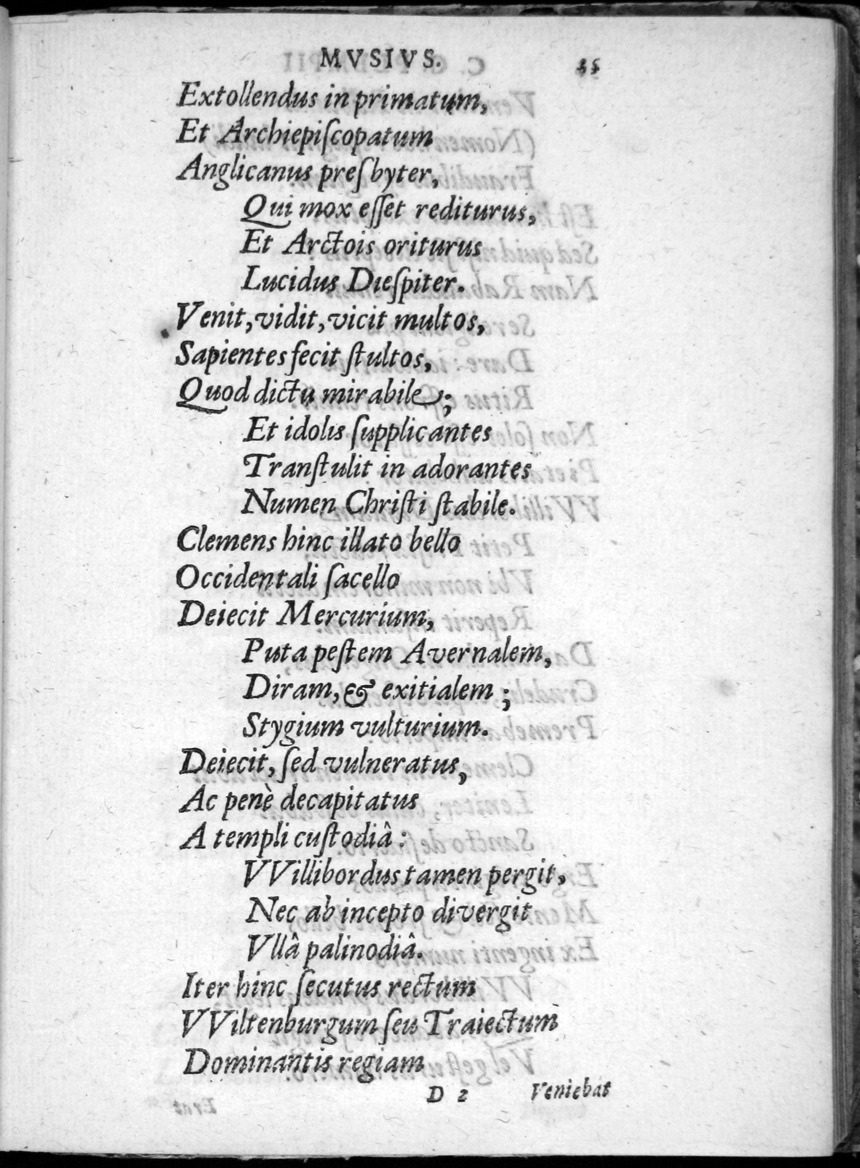 MVSIVS.
Extollendus in primatum,
Et Archiepiſcopatum
Anglicanus preſbyter,
Qui mox eſſet rediturus,
Et Arctois oriturus
Lucidus Dieſpiter.
Venit, vidit, vicit multos,
Sapientes fecit ſtultos,
Quod dictu mirabile;
Et idolis ſupplicantes
Tranſtulit in adorantes
Numen Chriſti ſtabile.
Clemens hinc illato bello
Occidentali ſacello
Deiecit Mercurium,
Puta peſtem Avernalem,
Diram, & exitialem;
Stygium vulturium.
Deiecit, ſed vulneratus,
Ac penè decapitatus
A templi cuſtodiâ:
VVillibordus tamen pergit,
Nec ab incepto divergit
Vllâ palinodiâ.
Iter hinc ſecutus rectum
VViltenburgum ſeu Traiectum
Dominantis regiam
D 2 Veniebat